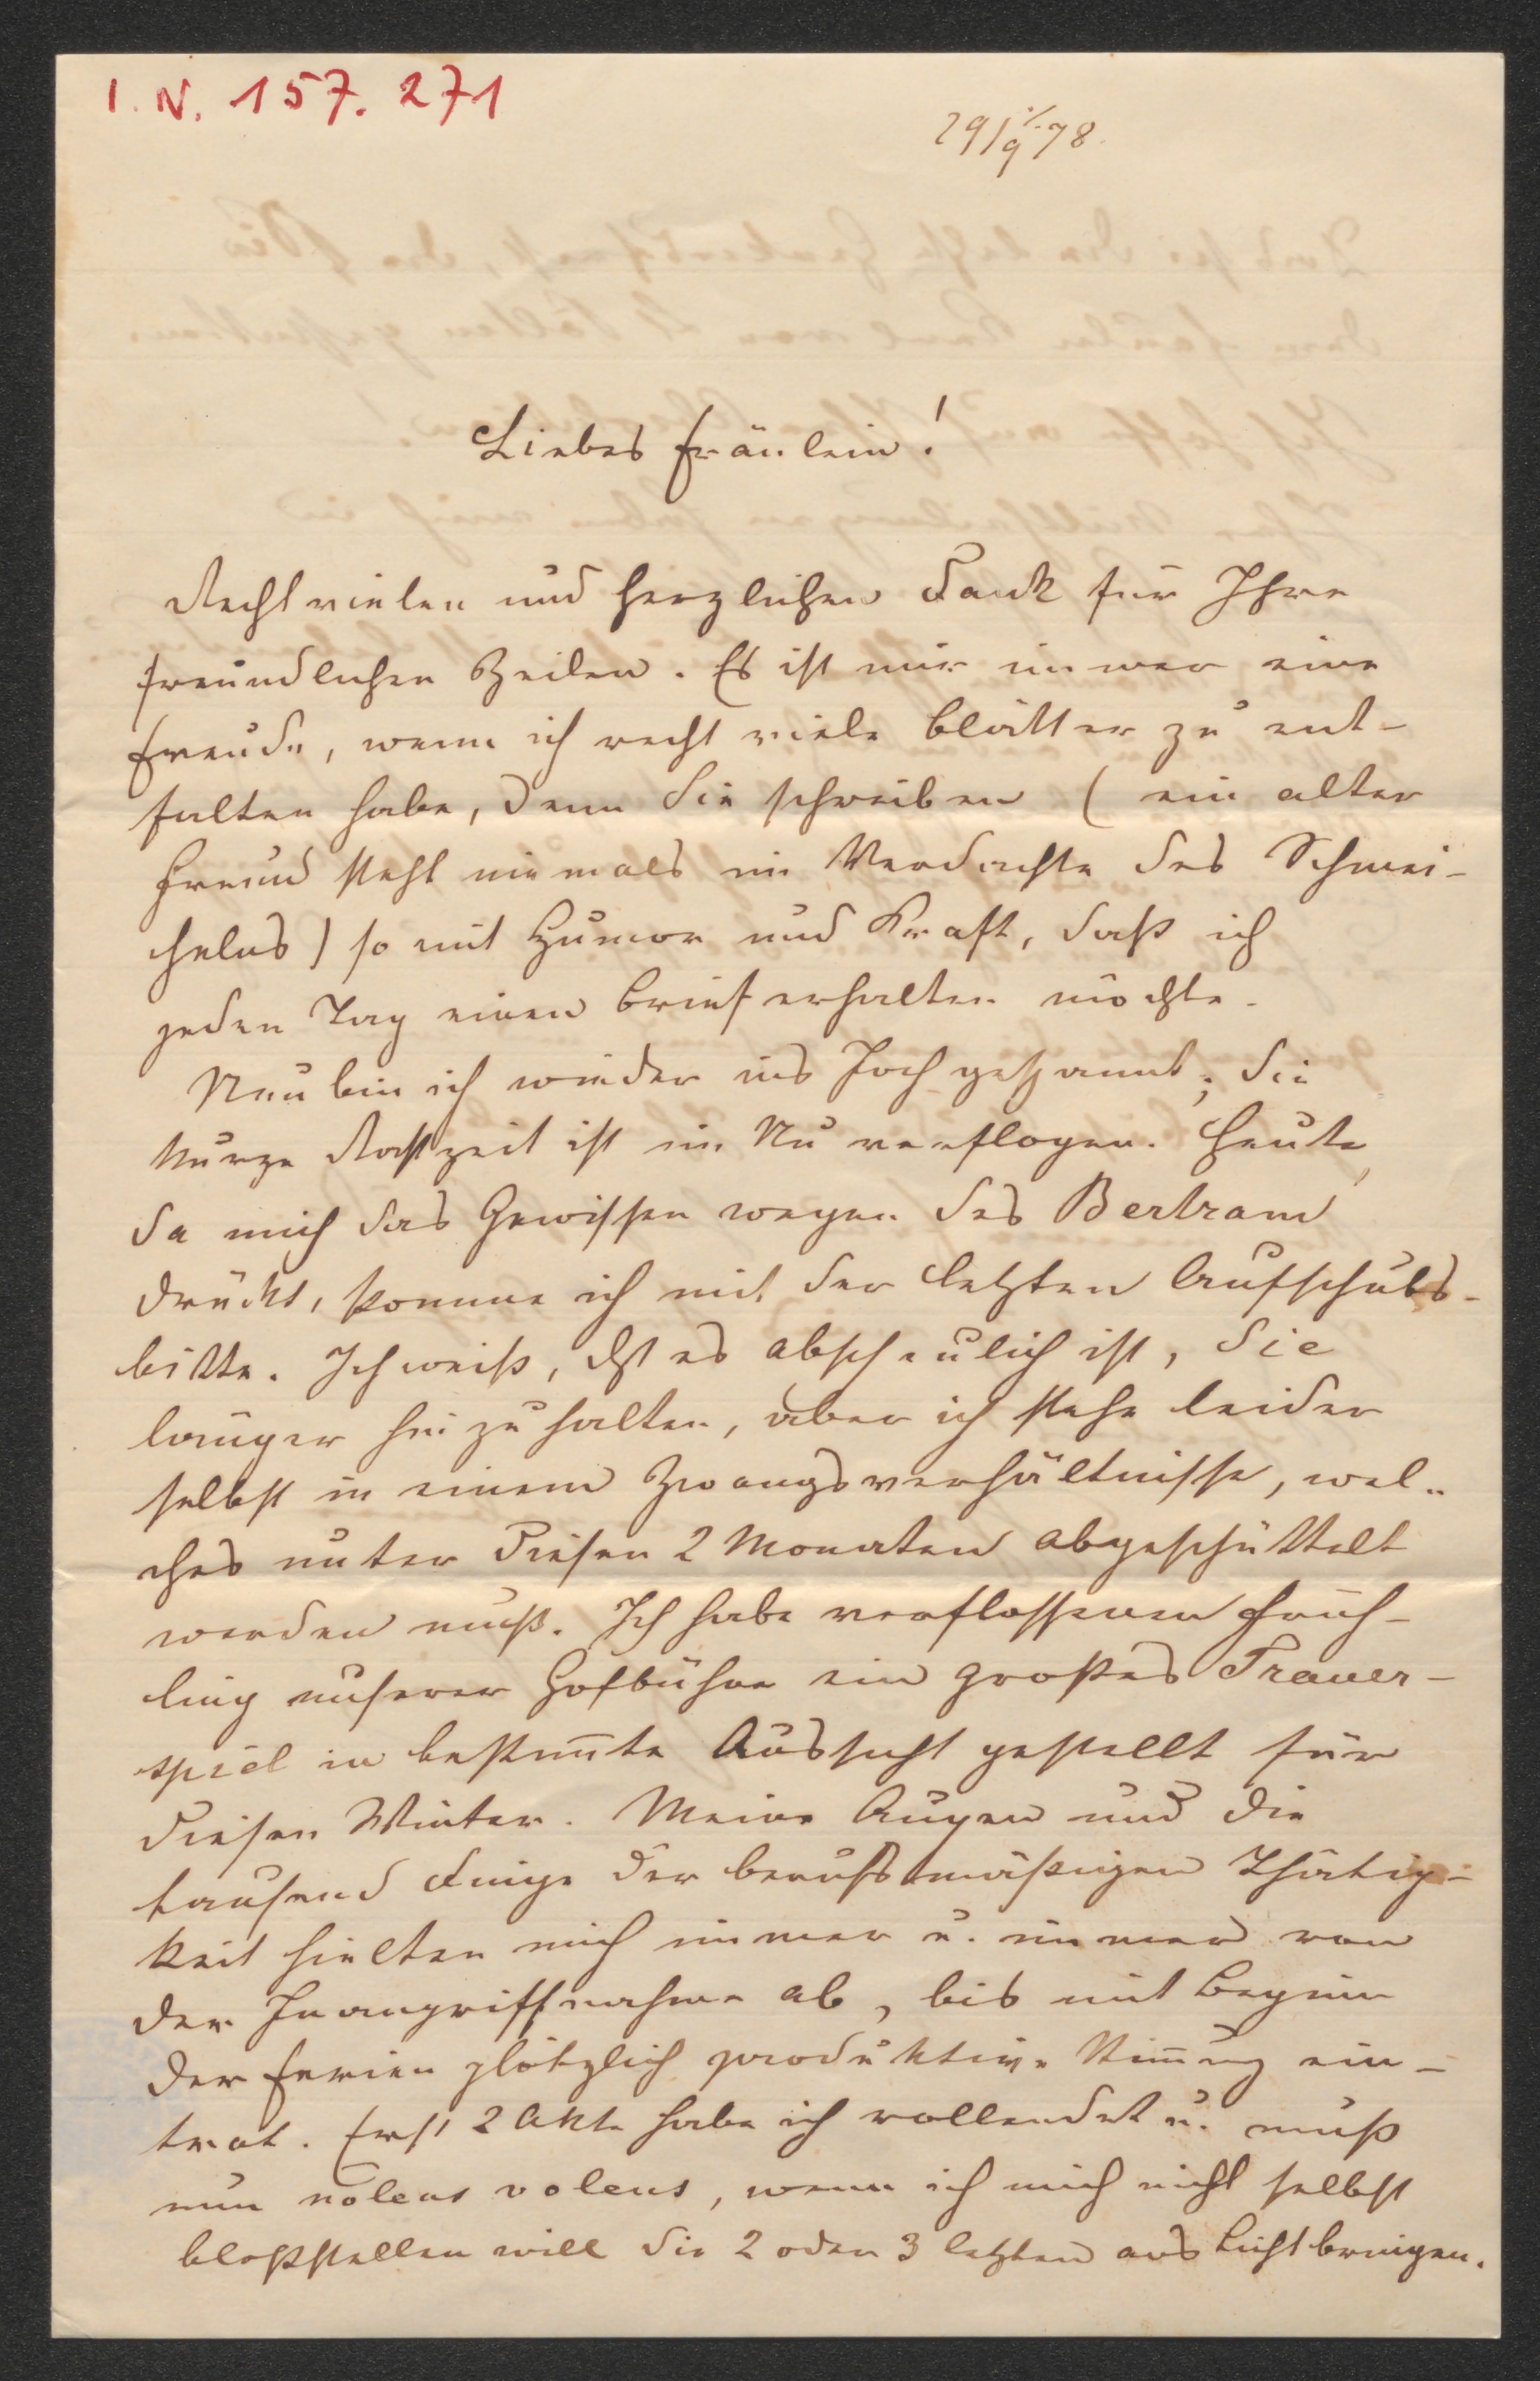 I. N. 157.271
29/9 78.
Liebes Fräulein!
Recht vielen und herzlichen Dank für Ihre
freundlichen Zeilen. Es ist mir immer eine
Freude, wenn ich recht viele Blätter zu ent-
falten habe, denn Sie schreiben (ein alter
Freund steht niemals im Verdachte des Schmei-
chelns) so mit Humor und Kraft, daß ich
jeden Tag einen Brief erhalten möchte.
Nun bin ich wieder ins Joch gespannt; die
kurze Rastzeit ist im Nu verflogen. Heute,
da mich das Gewissen wegen des Bertram
drückt, komme ich mit der letzten Aufschubs-
bitte. Ich weiß, dß es abscheulich ist, Sie
länger hinzuhalten, aber ich stehe leider
selbst in einem Zwangsverhältnisse, wel-
ches unter diesen 2 Monaten abgeschüttelt
werden muß. Ich habe verflossenen Früh-
ling unserer Hofbühne ein großes Trauer-
spiel in bestimte Aussicht gestellt für
diesen Winter. Meine Augen und die
tausend Dinge der berufsmäßigen Thätig-
keit hielten mich immer u. immer von
der Inangriffnahme ab, bis mit Beginn
der Ferien plötzlich produktive Stimung ein-
trat. Erst 2 Akte habe ich vollendet u. muß
nun nolens volens, wenn ich mich nicht selbst
bloßstellen will die 2 oder 3 letzten ans Licht bringen.